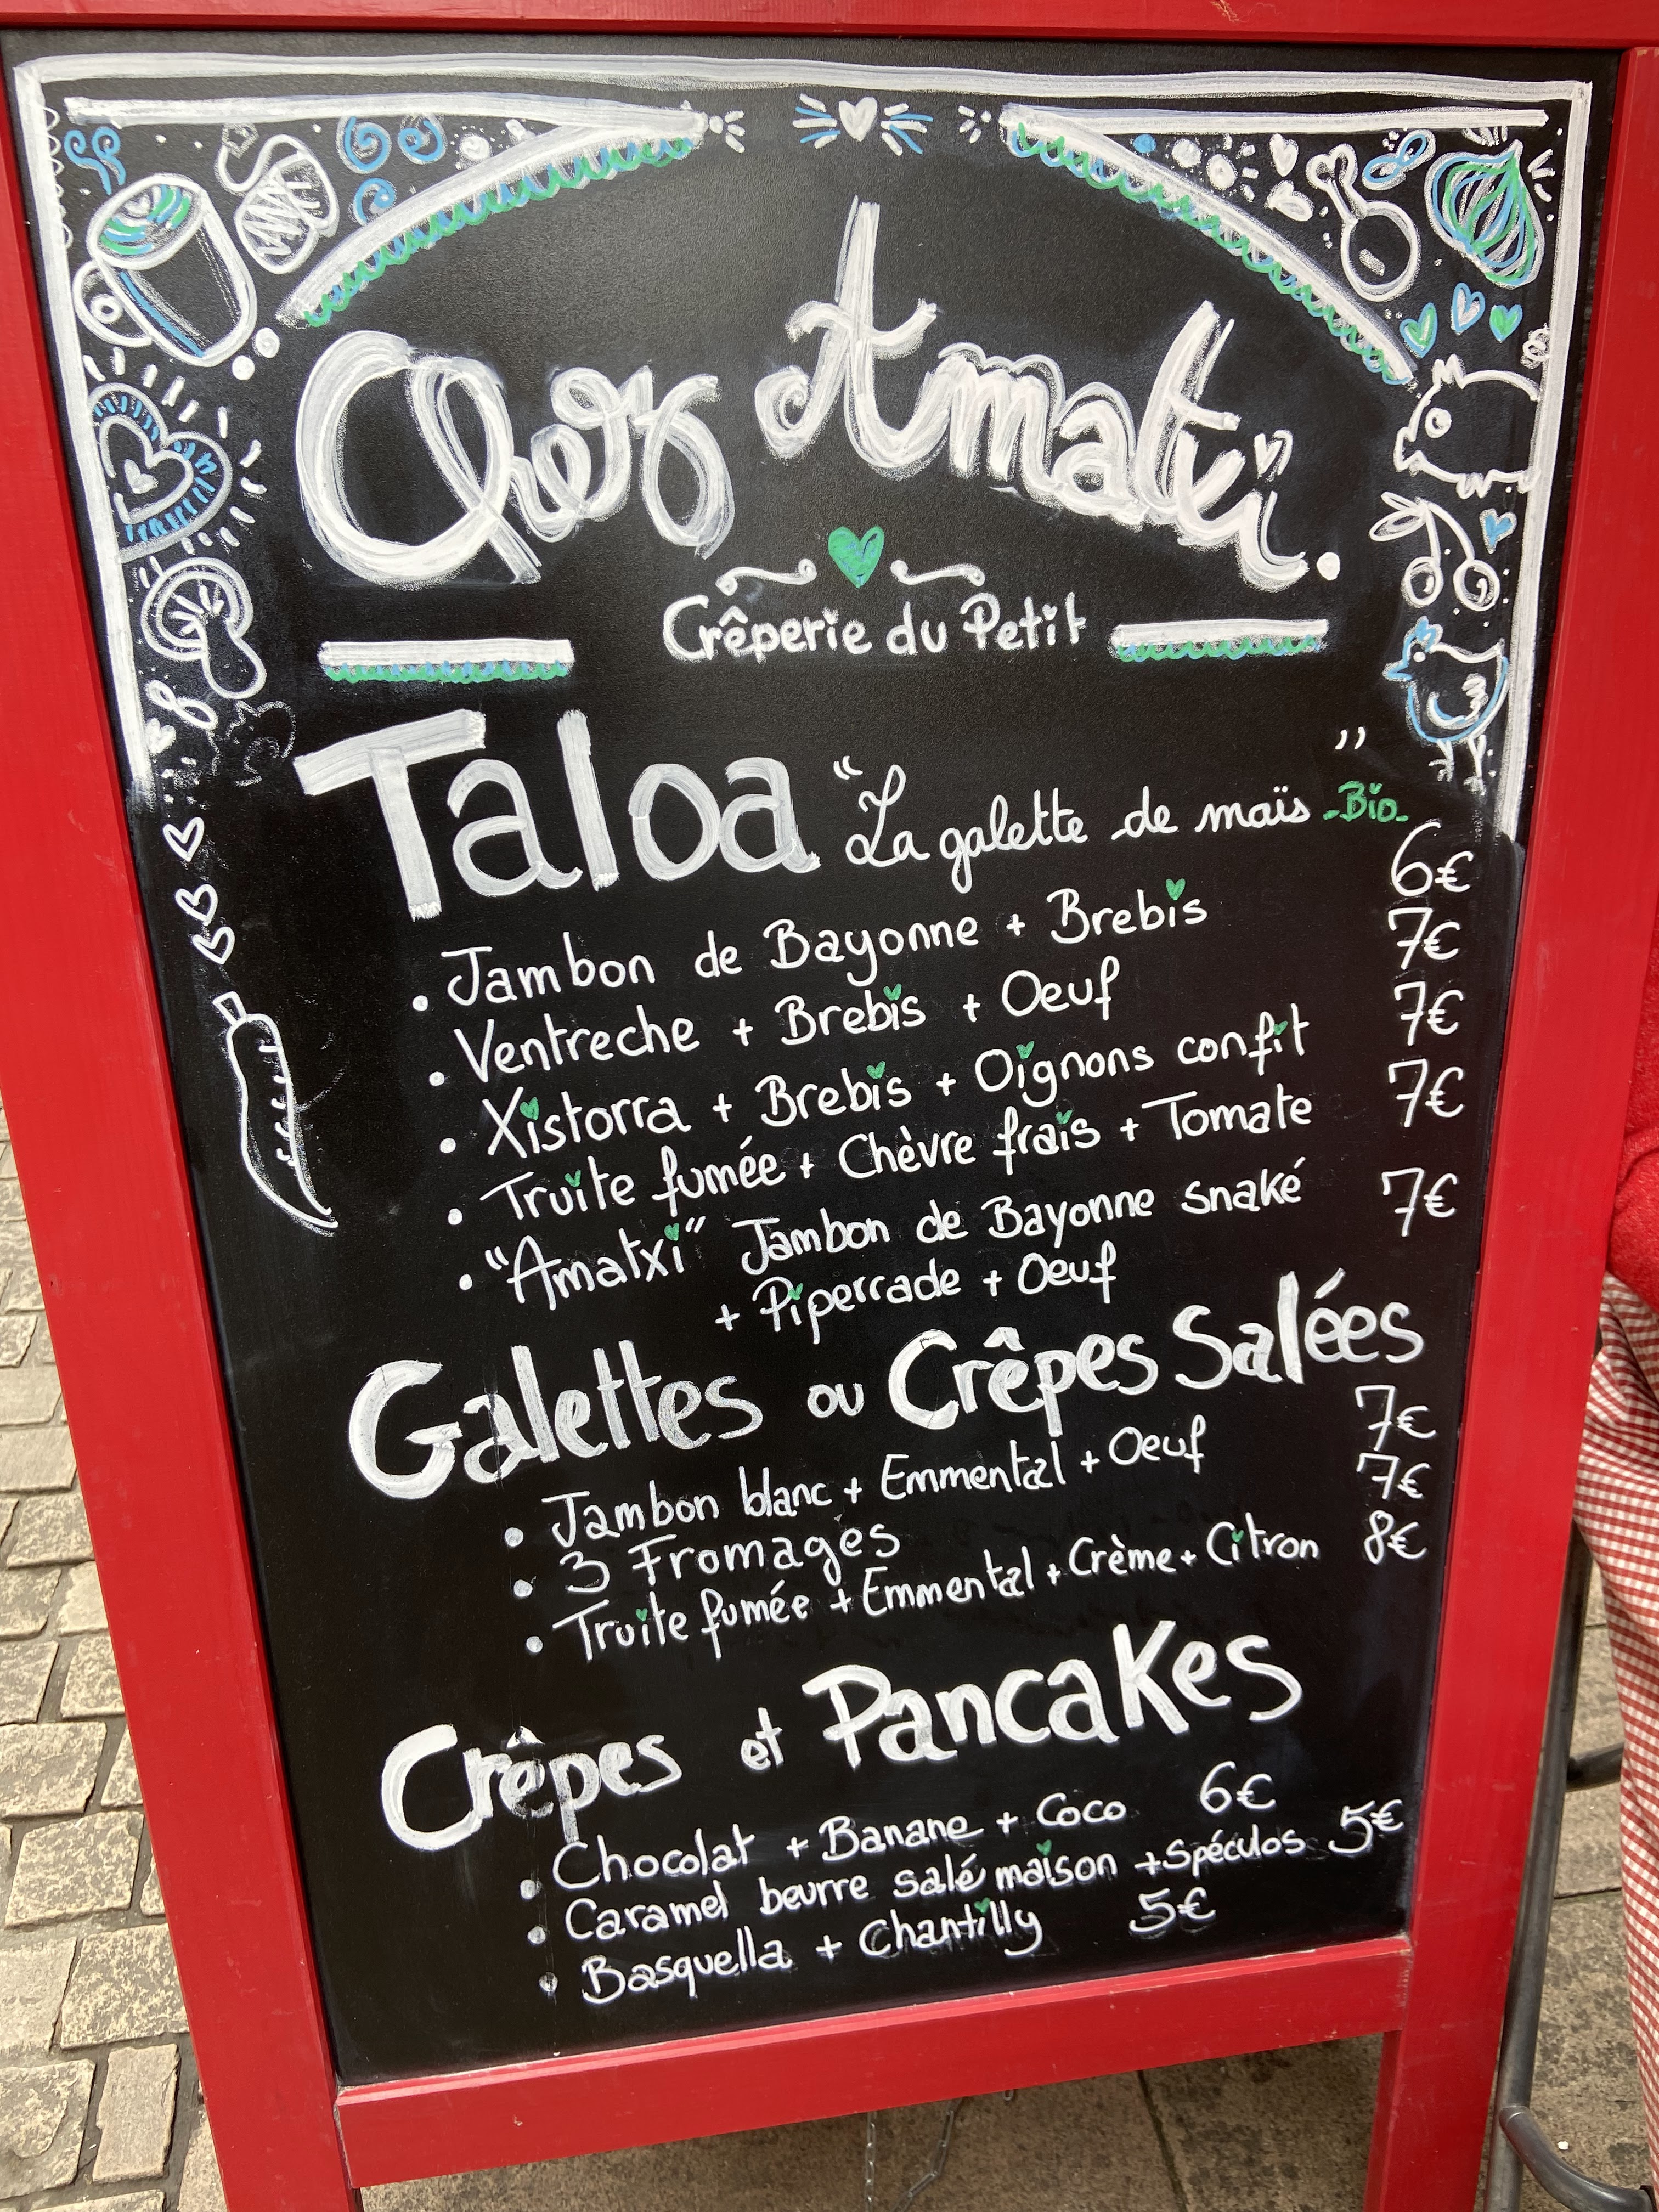 Chez Amatxi.
Crêperie du Petit
Taloa "La galette de maïs" -Bio-
• Jambon de Bayonne + Brebis 6€
• Ventreche + Brebis + Oeuf 7€
• Xistorra + Brebis + Oignons confit 7€
• Truite fumée + Chèvre frais + Tomate 7€
• "Amatxi" Jambon de Bayonne snaké 7€
+ Piperrade + Oeuf
Galettes ou Crêpes Salées
• Jambon blanc + Emmental + Oeuf 7€
• 3 Fromages 7€
• Truite fumée + Emmental + Crème + Citron 8€
Crêpes et Pancakes
• Chocolat + Banane + Coco 6€
• Caramel beurre salé maison + Spéculos 5€
• Basquella + Chantilly 5€